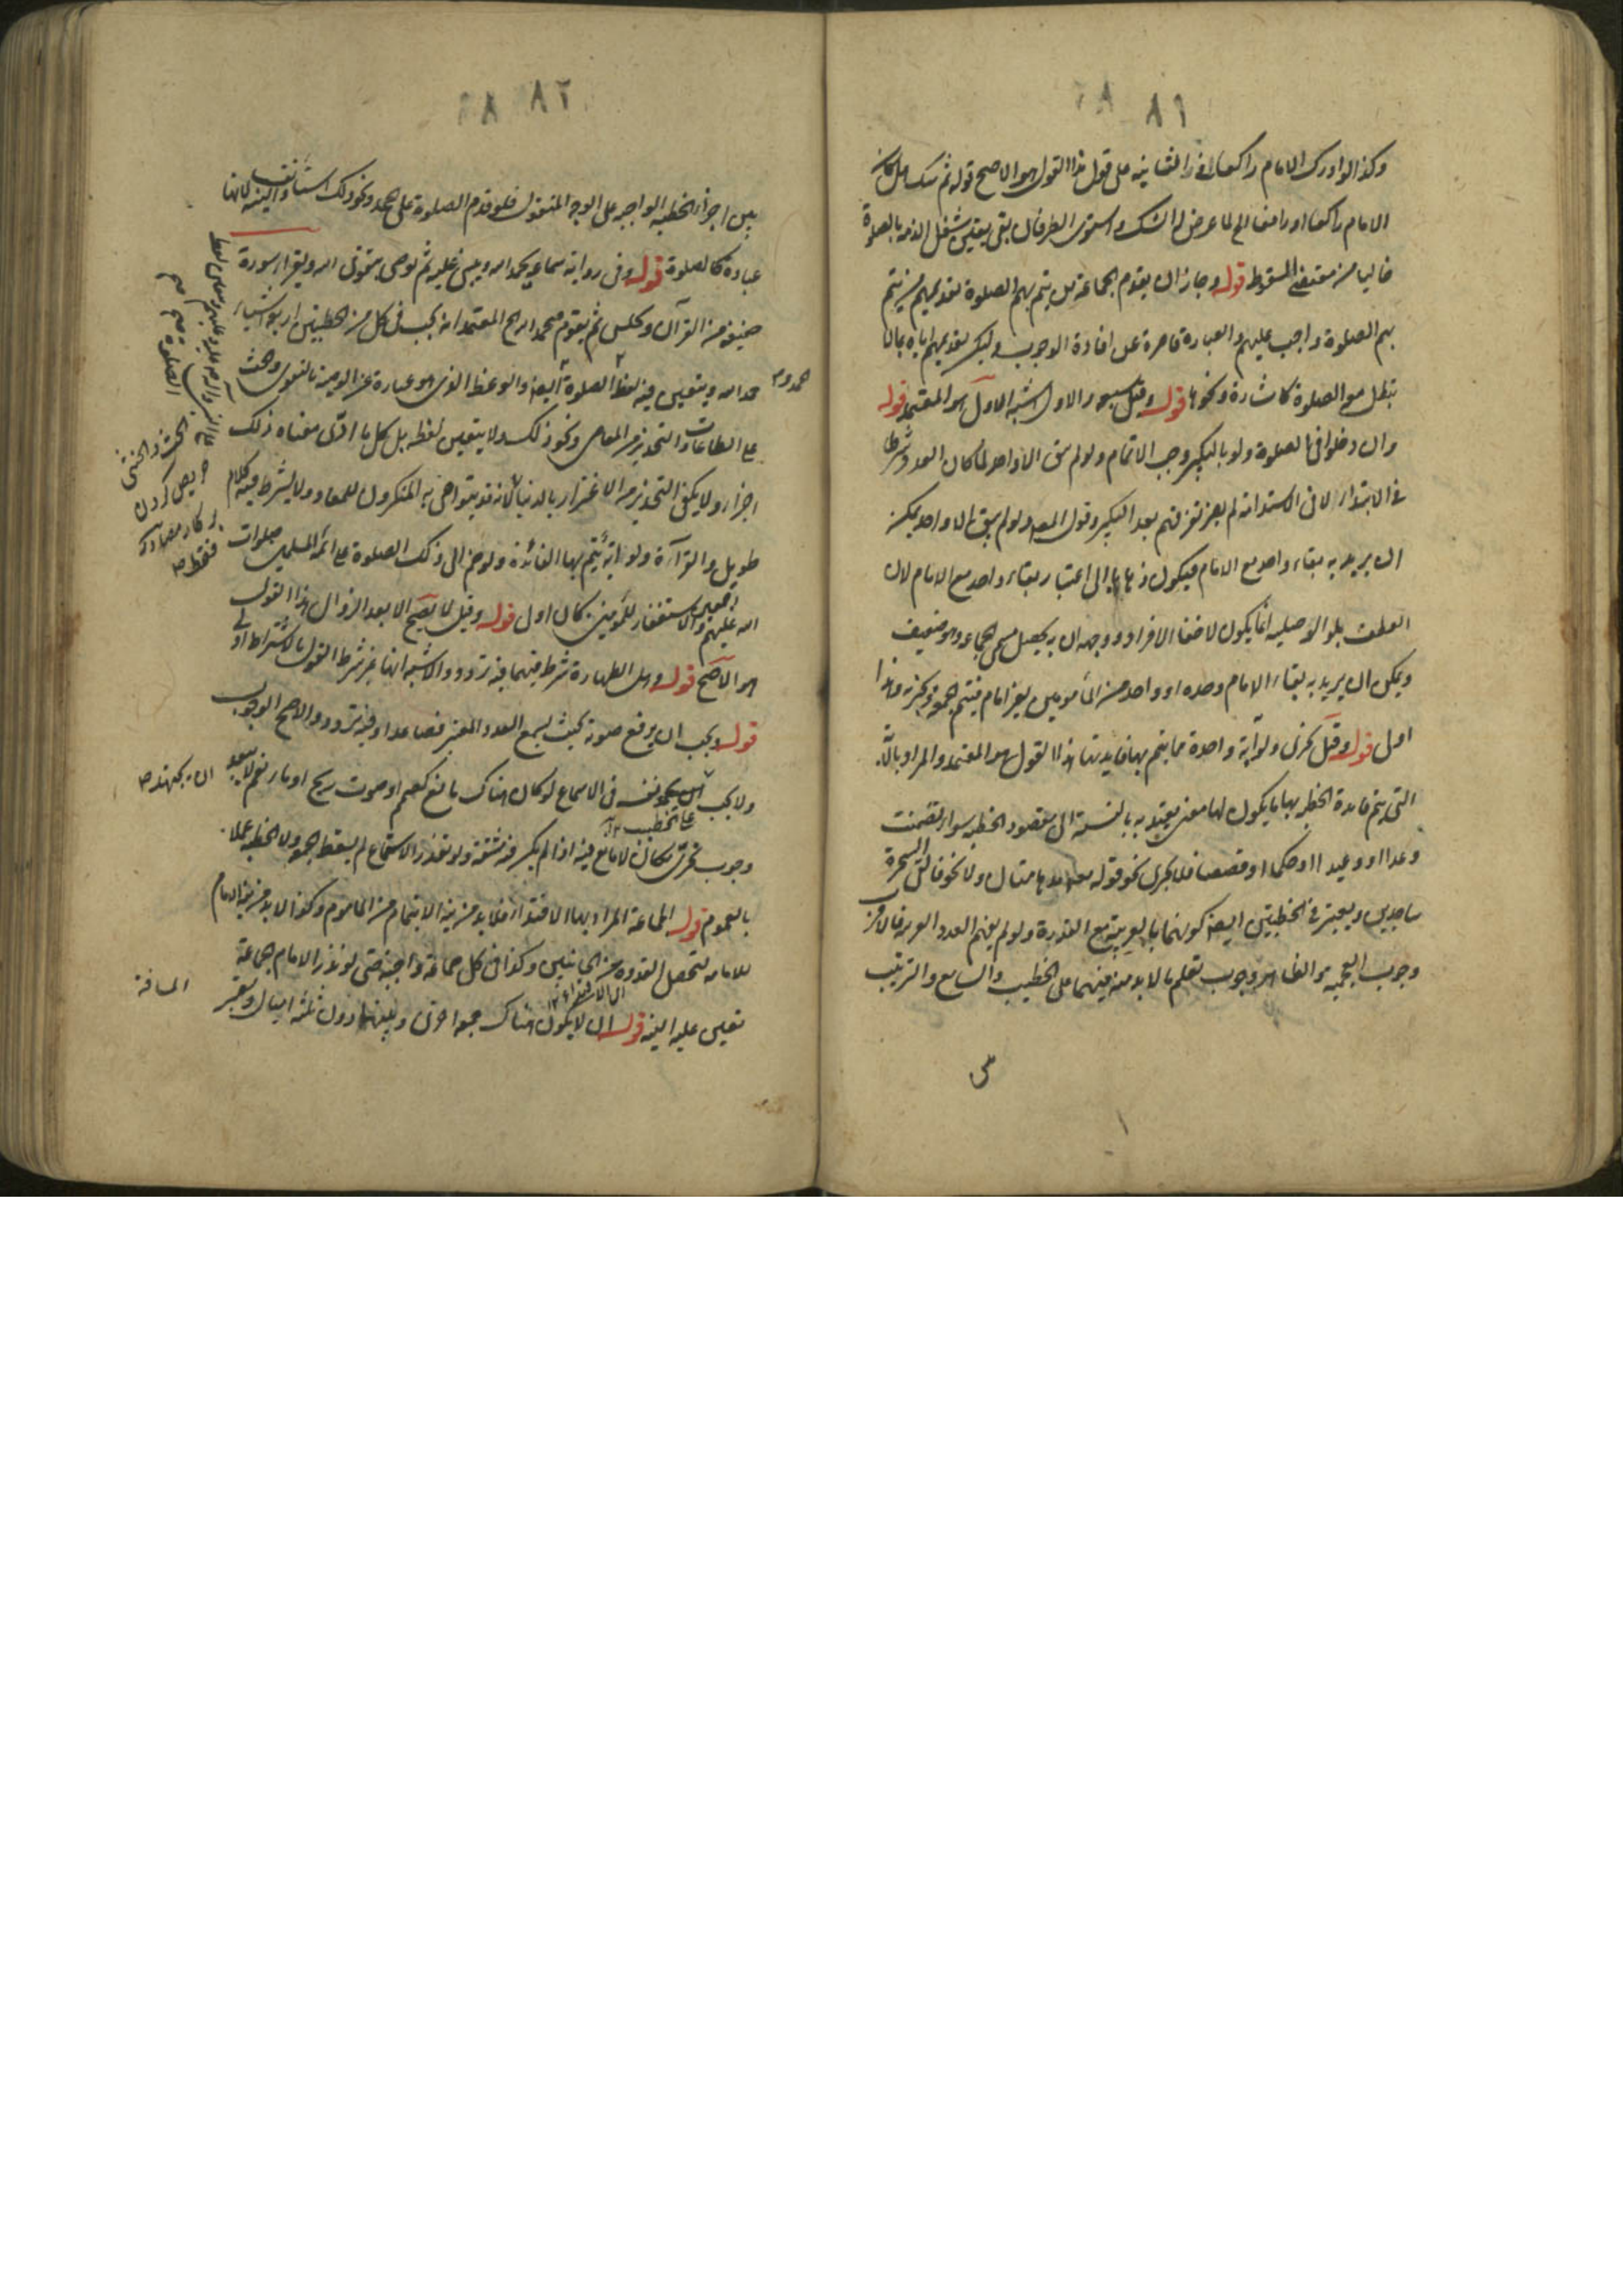 ٨١
وكذا لو ادرك الامام راكعا فى الثانيه على قول هذا القول هو الاصح قوله ثم شك هل كان
الامام راكعا او رافعا الخ لما عرض له الشك و استوى الطرفان بقى يقين شغل الذمه بالصلوة
خاليا من مقتضى المسقط قوله وجاز ان يقوم الجماعة من يتم بهم الصلوة تقديمهم من يتم
بهم الصلوة واجب عليهم والعبارة قاصرة عن افادة الوجوب وليكن تقديمهم اياه بما لا
يبطل مع الصلوة كاشارة ونحوها قوله وقيل سبعه والاول اشبه الاول هو المعتمد قوله
وان دخلوا فى الصلوة ولو بالتكبير وجب الاتمام ولو لم يبق الا واحد لما كان العدد شرطا
فى الابتداء لا فى الاستدامة لم يضر تفرقهم بعد التكبير وقول المصـ ولو لم يبق الا واحد يمكن
ان يريد به بقاء واحد مع الامام فيكون ذهابا الى اعتبار بقاء واحد مع الامام لان
العطف بلو الوصليه انما يكون لاخفا الافراد ووجهه ان به يحصل مسمى الجماعه وهو ضعيف
ويمكن ان يريد به بقاء الامام وحده او واحد من المأمومين بغير امام فيتم جمعة وهذا
اولى قوله وقيل يجزى ولو آية واحدة مما يتم بها فايدتها هذا القول هو المعتمد والمراد بالآية
التى يتم فايدة الخطبه بها ما يكون لها معنى يعتد به بالنسبة الى مقصود الخطبه سواء تضمنت
وعدا او وعيدا او حكما او قصصا فلا يجزى نحو قوله مدهامتان ولا نحو فالقى السحرة
ساجدين ويعتبر فى الخطبتين ايضا كونهما بالعربية مع القدرة ولو لم يفهم العدد العربيه فالاقرب
وجوب العجميه والظاهر وجوب تعلم ما لا بد منه فيهما على الخطيب والسامع والترتيب
٨٢
بين اجزاء الخطبه الواجبه على الوجه المنقول فلو قدم الصلوة على الحمد ونحو ذلك استأنف والنيه لانها
عبادة كالصلوة قوله وفى رواية سماعه يحمد الله ويثنى عليه ثم يوصى بتقوى الله ويقرأ سورة
خفيفه من القرآن ويجلس ثم يقوم فيحمد الله الخ المعتمد انه يجب فى كل من الخطبتين اربعة اشياء
حمد الله ويتعين فيه لفظ الصلوة ايضا والوعظ الذى هو عبارة عن الوصية بالتقوى والحث
على الطاعات والتحذير من المعاصى ونحو ذلك ولا يتعين لفظه بل كل ما ادى معناه ذلك
اجزأ ولا يكفى التحذير من الاغترار بالدنيا لانه قد يتواصى به المنكرون للمعاد ولا يشترط فيه كلام
طويل والقراءة ولو آية يتم بها الفائدة ولو ضم الى ذلك الصلوة على ائمة المسلمين صلوات
الله عليهم اجمعين والاستغفار للمؤمنين كان اولى قوله وقيل لا يصح الا بعد الزوال هذا القول
هو الاصح قوله وهل الطهارة شرط فيهما فيه تردد والاشبه انها غير شرط القول بالاشتراط اولى
قوله ويجب ان يرفع صوته بحيث يسمع العدد المعتبر فصاعدا وفيه تردد والاصح الوجوب
ولا يجب ان يجهد نفسه فى الاسماع لو كان هناك مانع كصمم او صوت ريح او مار نعم لا يبعد
على الخطيب
وجوب تحرى مكان لا مانع فيه اذا لم يكن فيه مشقة ولو تعذر الاستماع لم يسقط الجمعه ولا الخطبه عملا
بالعموم قوله الجماعة المراد بها الاقتداء فلا بد من نية الايتمام من المأموم وكذا لا بد من نية الامام
للامامه لتحصل القدوه من الجانبين وكذا فى كل جماعة واجبة حتى لو نذر الامام جماعة
تعين عليه النيه قوله ان لا يكون هناك جمعه اخرى وبينهما دون ثلثة اميال ويعتبر
المسافة